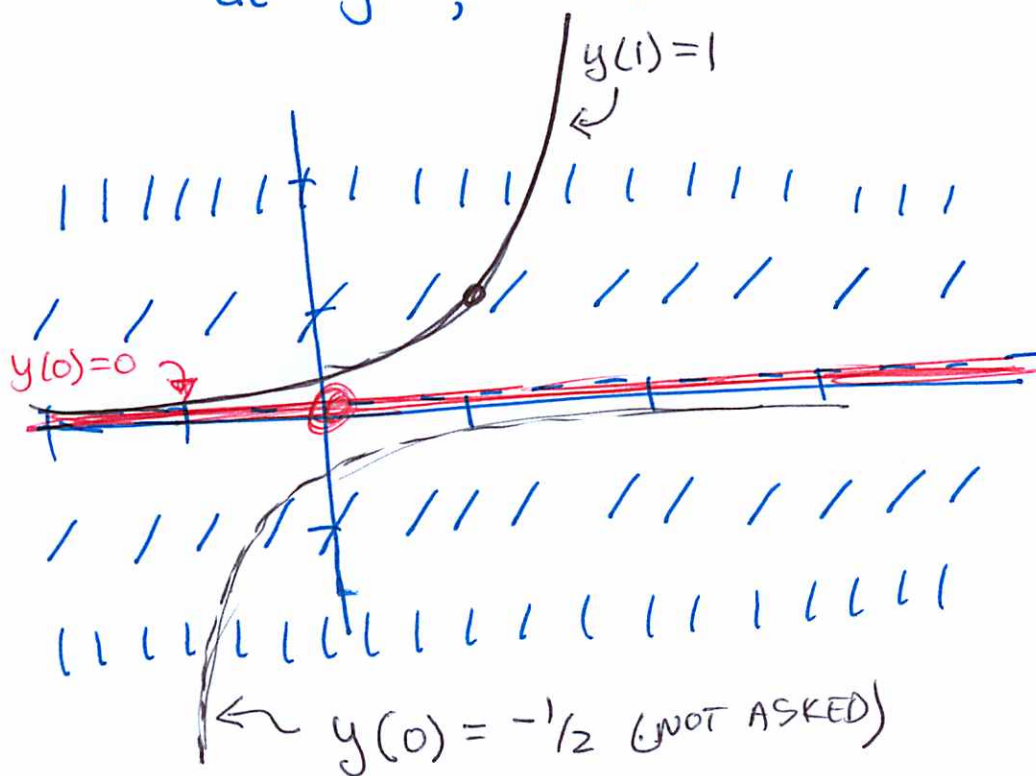 y(1)=1
y(0)=0
y(0) = -1/2 (NOT ASKED)